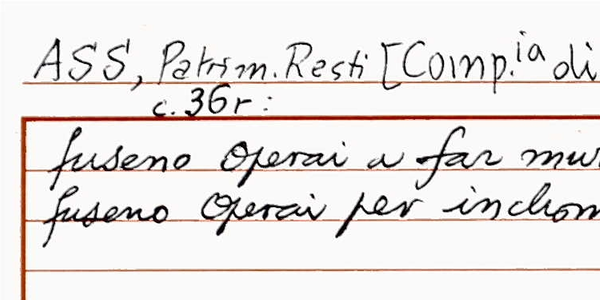 ASS, Patrim. Resti [Comp.ia di
c. 36r:
fuseno Operai a far mur
fuseno Operai per inchom